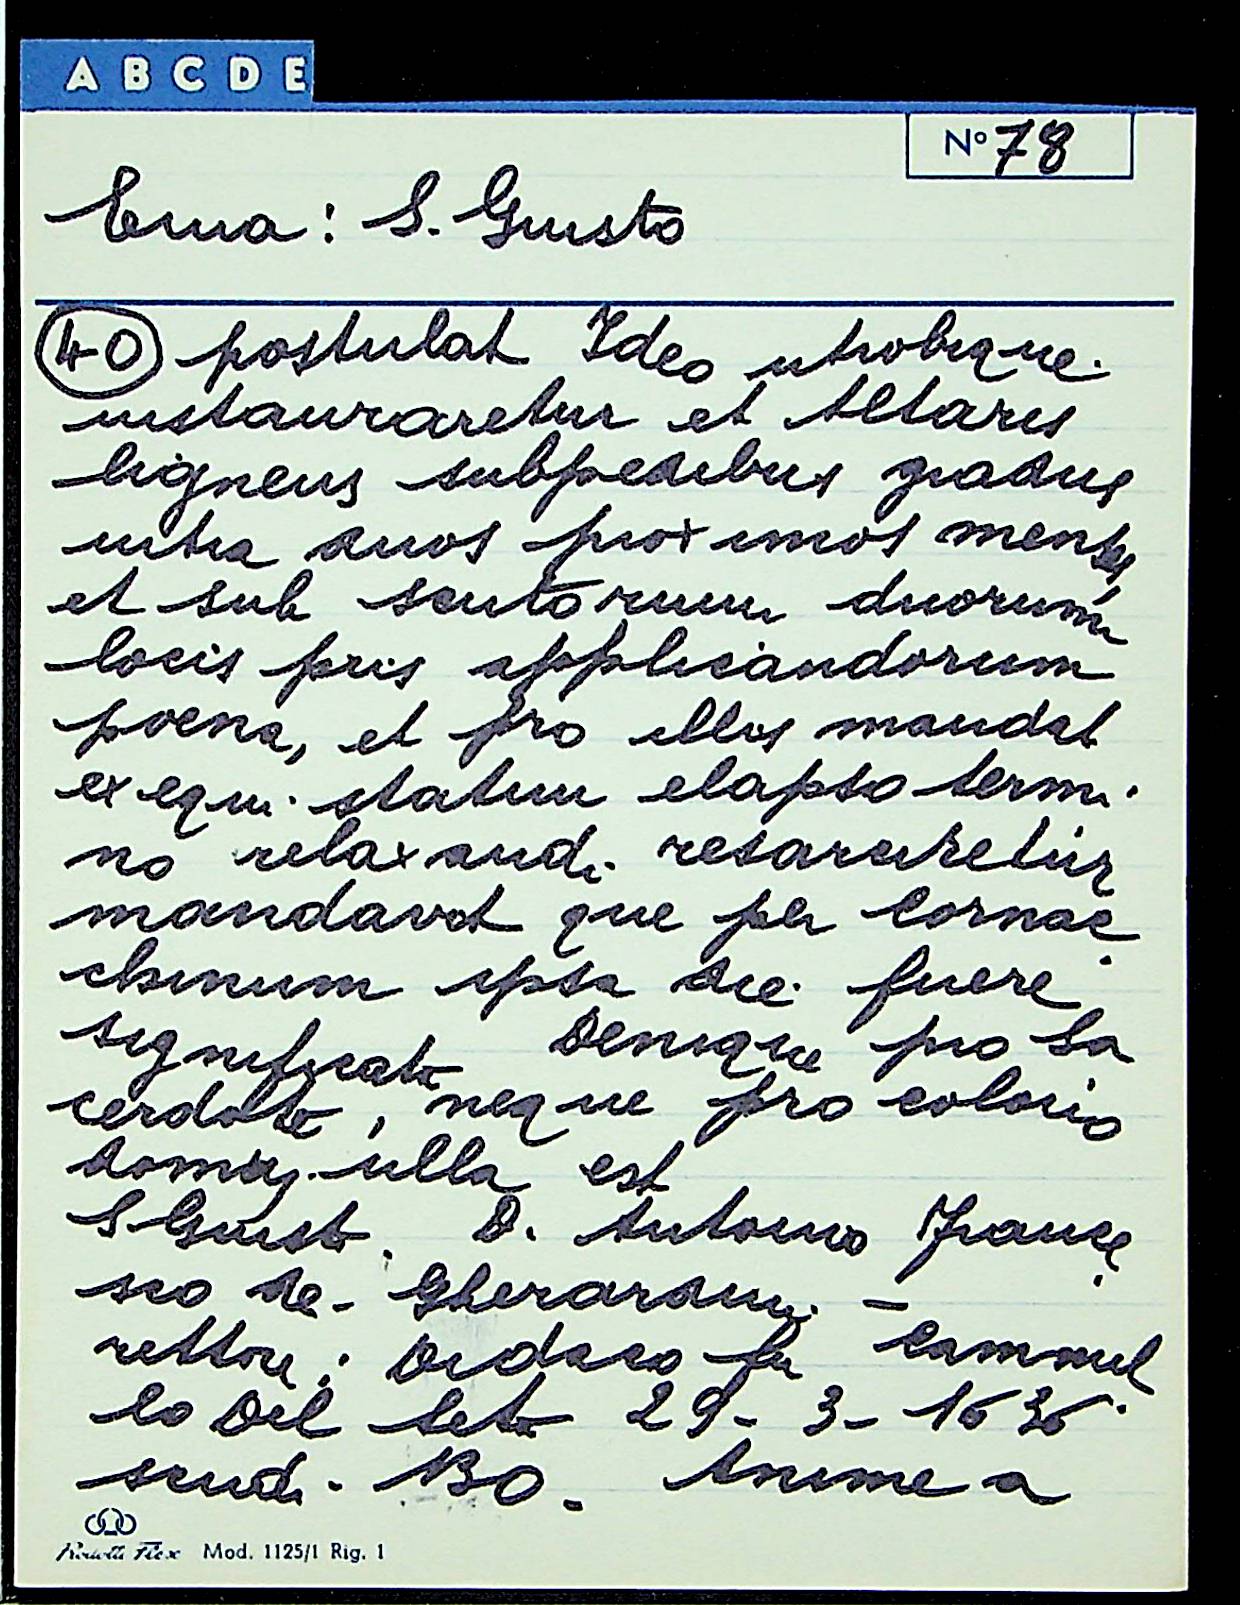 A B C D E
Nº 78
Ema: S. Giusto
40 postulat Ideo utrobique
instauraretur et Altaris
ligneus subpedibus gradus
intra duos proximos menses
et sub scutorum duorum
locis piis applicandorum
poena, et pro illis mandat
exequi statim elapso termi-
no relaxandi resarciretur
mandavit que per Cornac
chinum ipsa die fuere
significata Denique pro Sa
cerdote, neque pro colono
domus ulla est
S Giusto. D. Antonio France
sco de Gherardini -
rettore: Didaco fu Cammil
lo Del Seta 29-3-1636
scudi - 130. Anime a
Mod. 1125/1 Rig. 1